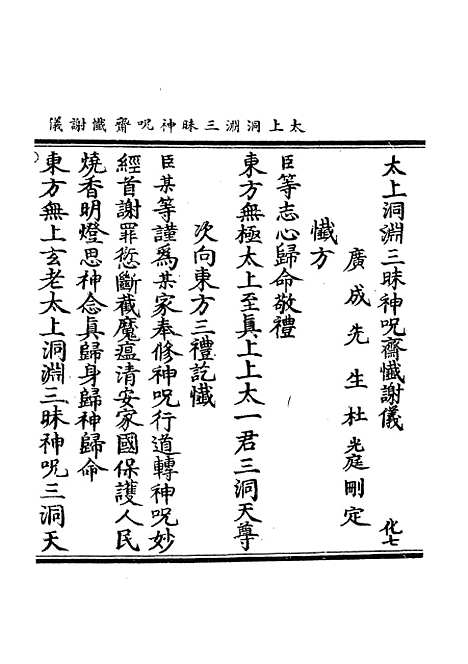 太上洞淵三昧神呪齋懺謝儀
太上洞淵三昧神呪齋懺謝儀
化七
廣成先生杜光庭刪定
懺方
臣等志心歸命敬禮
東方無極太上至真上上太一君三洞天尊
次向東方三禮訖懺
臣某等謹爲某家奉修神呪行道轉神呪妙
經首謝罪愆斷截魔瘟清安家國保護人民
燒香明燈思神念真歸身歸神歸命
東方無上玄老太上洞淵三昧神呪三洞天